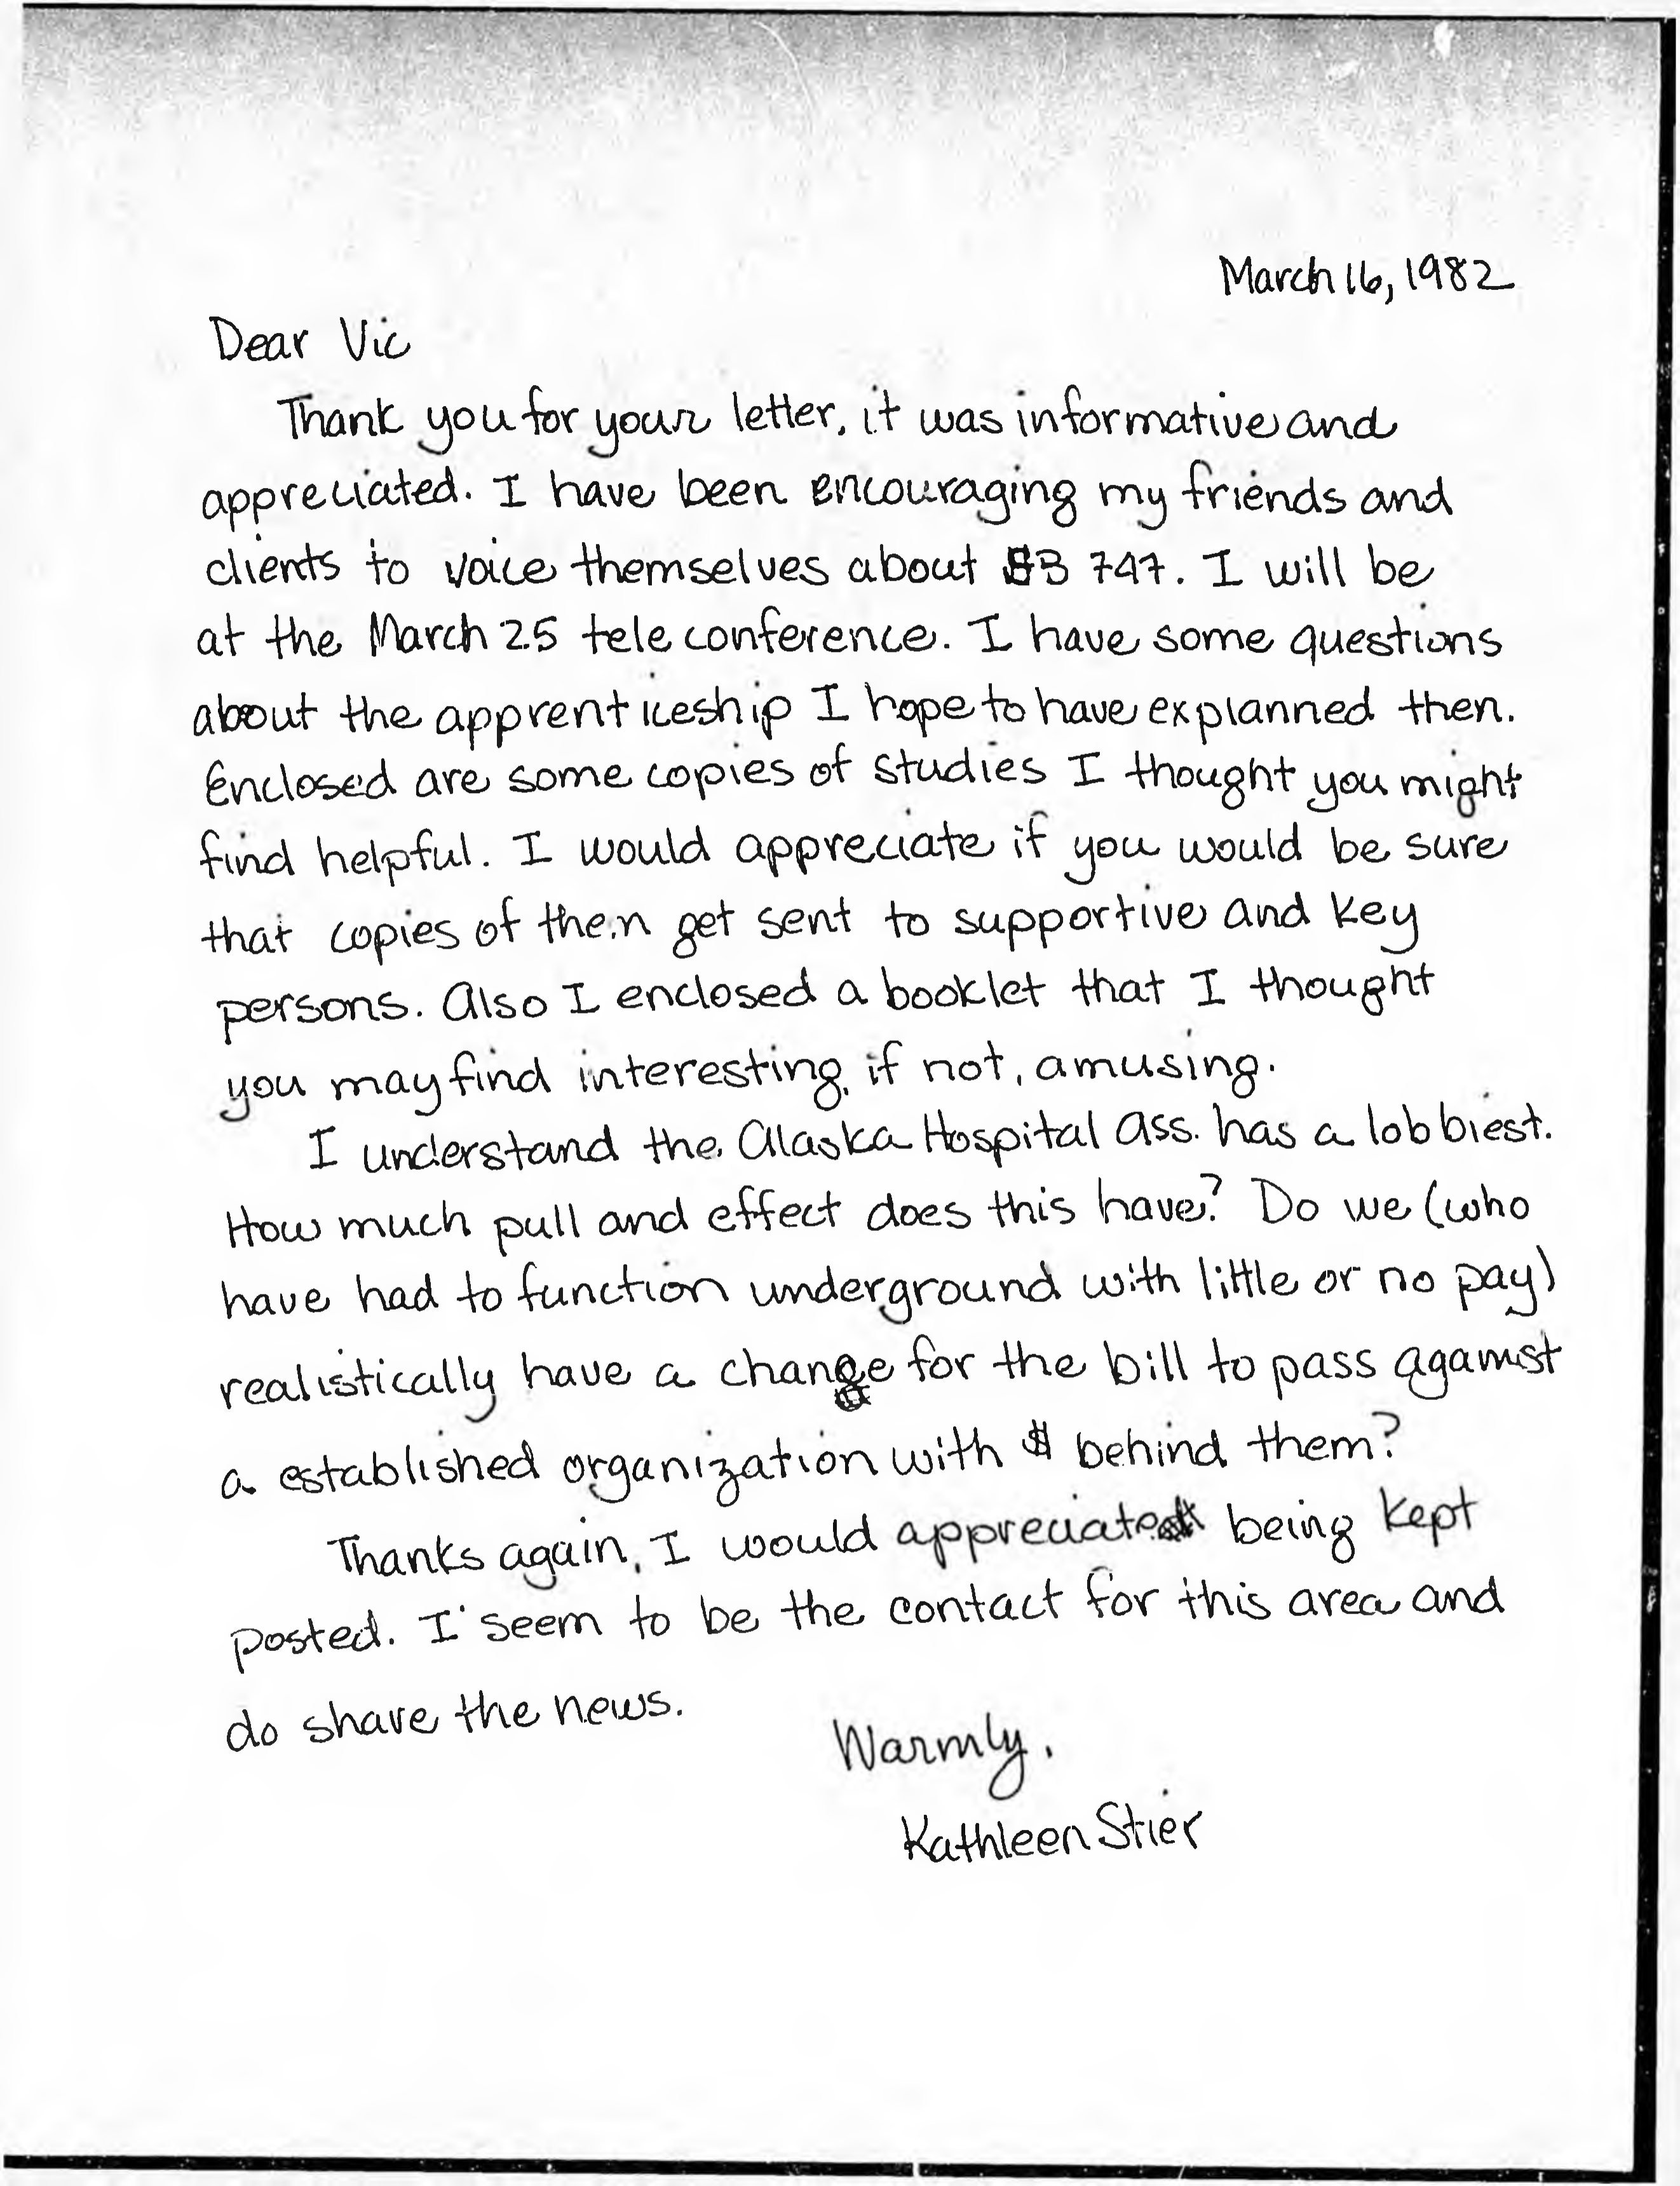 March 16, 1982
Dear Vic
Thank you for your letter, it was informative and
appreciated. I have been encouraging my friends and
clients to voice themselves about SB 747. I will be
at the March 25 tele conference. I have some questions
about the apprenticeship I hope to have explanned then.
Enclosed are some copies of studies I thought you might
find helpful. I would appreciate if you would be sure
that copies of them get sent to supportive and key
persons. Also I enclosed a booklet that I thought
you may find interesting, if not, amusing.
I understand the Alaska Hospital Ass. has a lobbiest.
How much pull and effect does this have? Do we (who
have had to function underground with little or no pay)
realistically have a change for the bill to pass against
a established organization with $ behind them?
Thanks again, I would appreciate being kept
posted. I seem to be the contact for this area and
do share the news.
Warmly,
Kathleen Stier